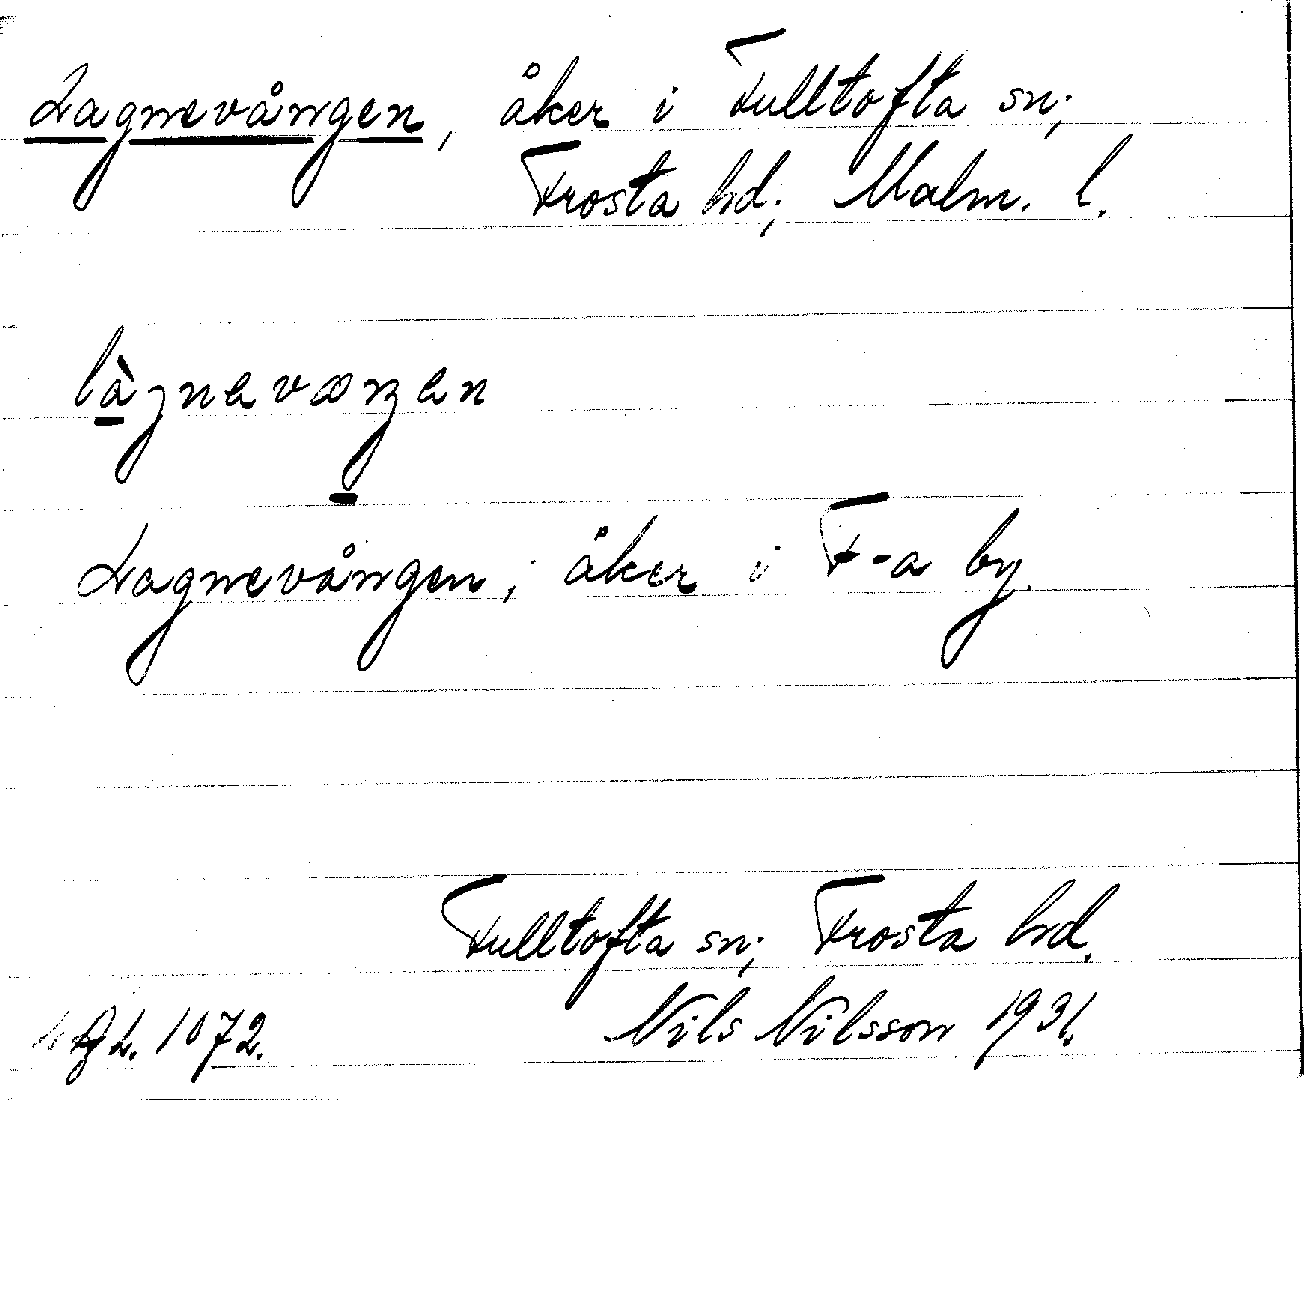 Lagnevången, åker i Fulltofta sn;
Frosta hd; Malm. l.
làɡnevæŋen
Lagnevången; åker i F-a by.
Fulltofta sn; Frosta hd.
Nils Nilsson 1931.
1072.